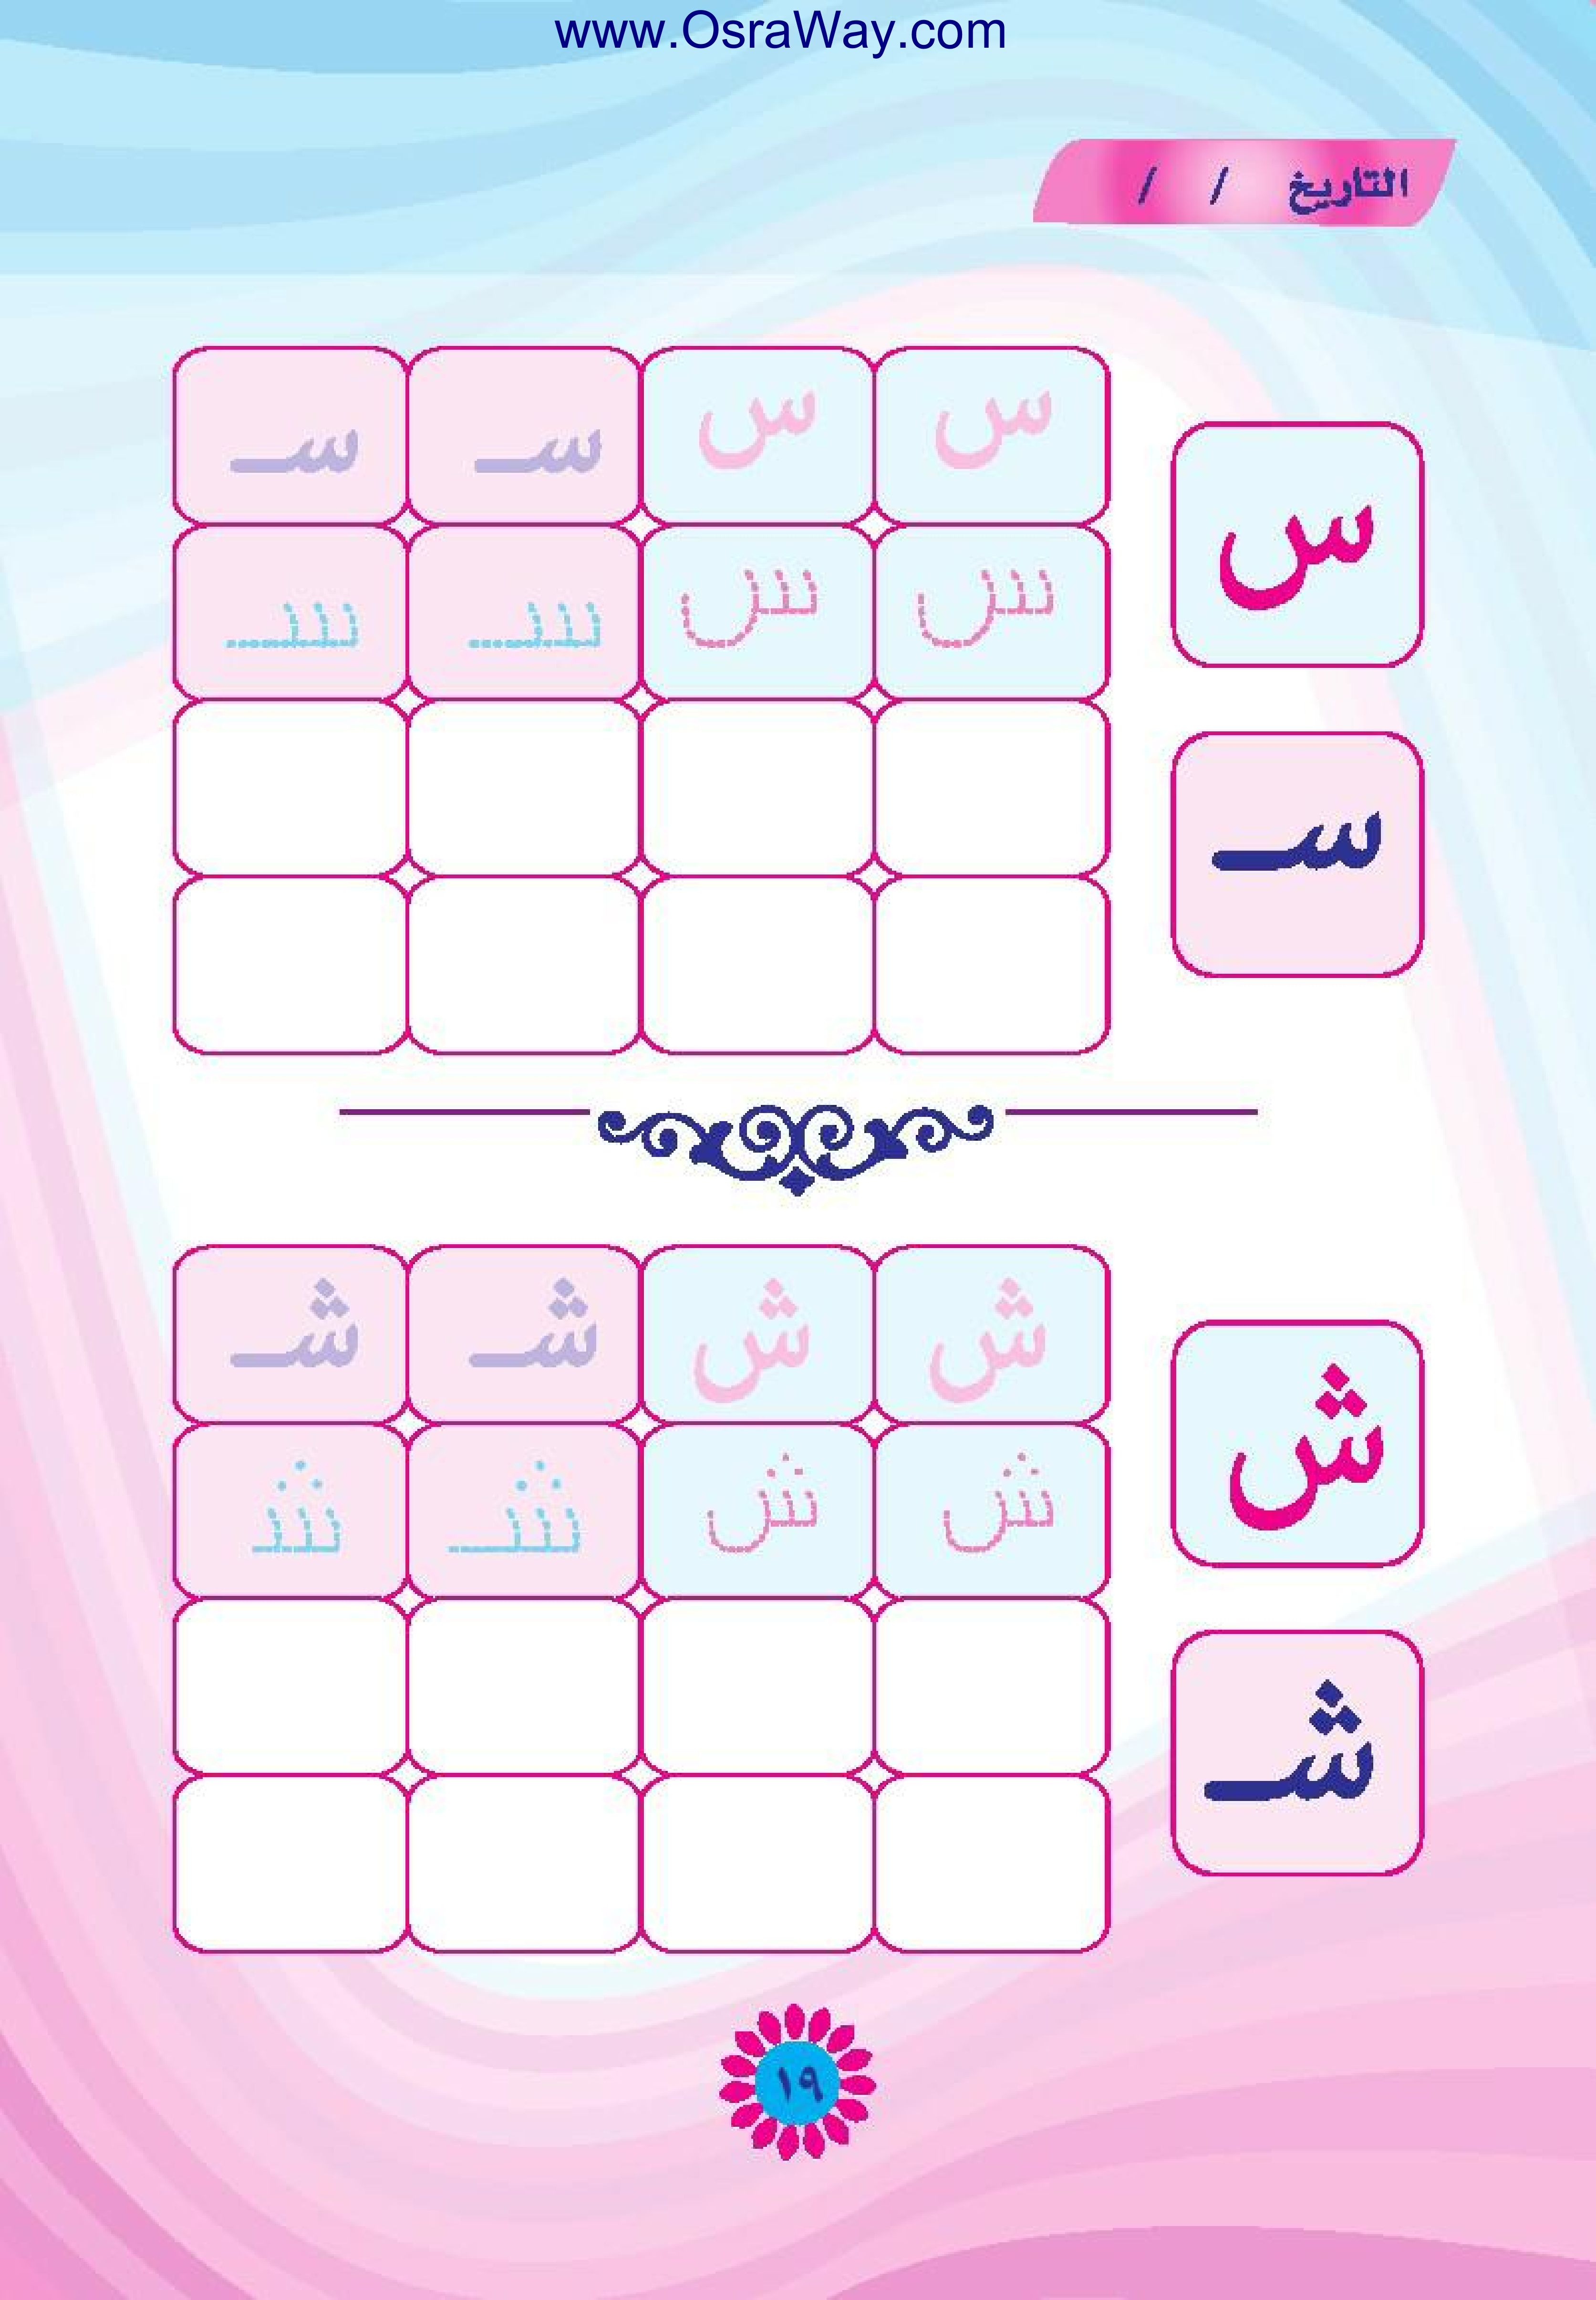 www.OsraWay.com
التاريخ / /
س
س س سـ سـ
س س سـ سـ
سـ
ش
ش ش شـ شـ
ش ش شـ شـ
شـ
١٩